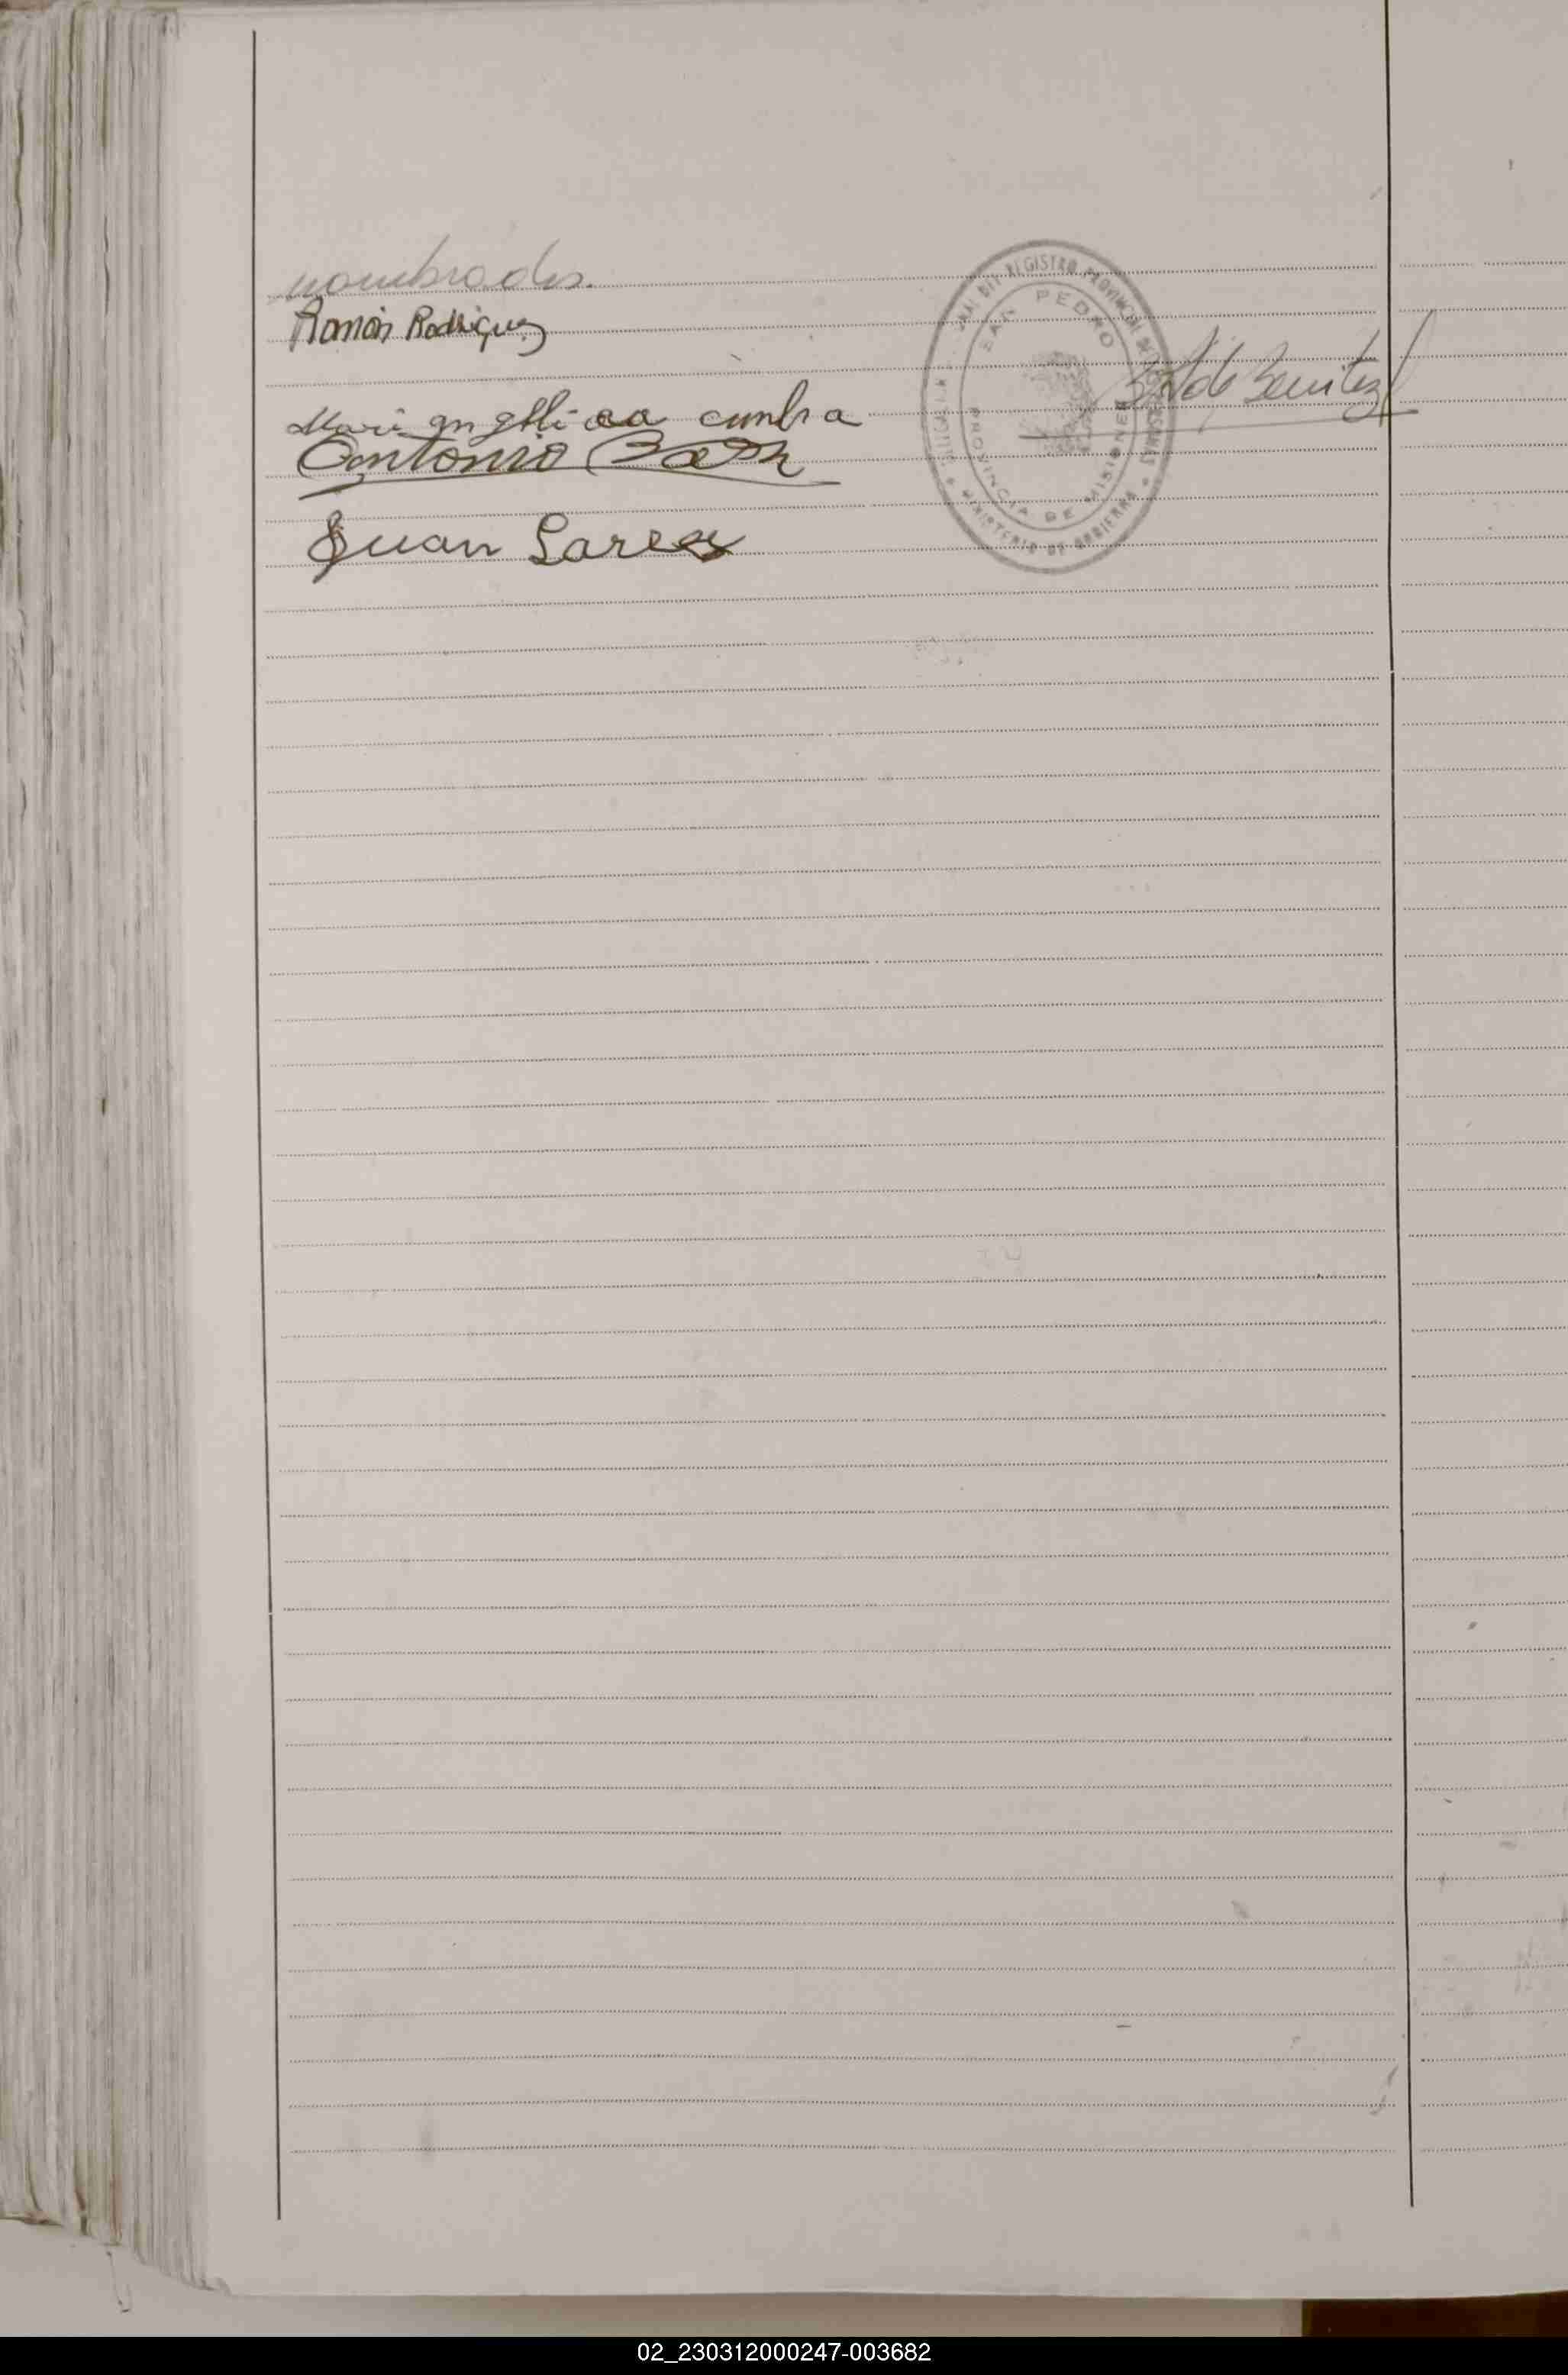 nombrados.
Ramón Rodriguez
Mari angelica cunha
Antonio
Juan Lares
de Benitez
DEL REGISTRO PROVINCIAL DE LAS PERSONAS
SAN PEDRO
PROVINCIA DE MISIONES
MINISTERIO DE GOBIERNO
02_230312000247-003682